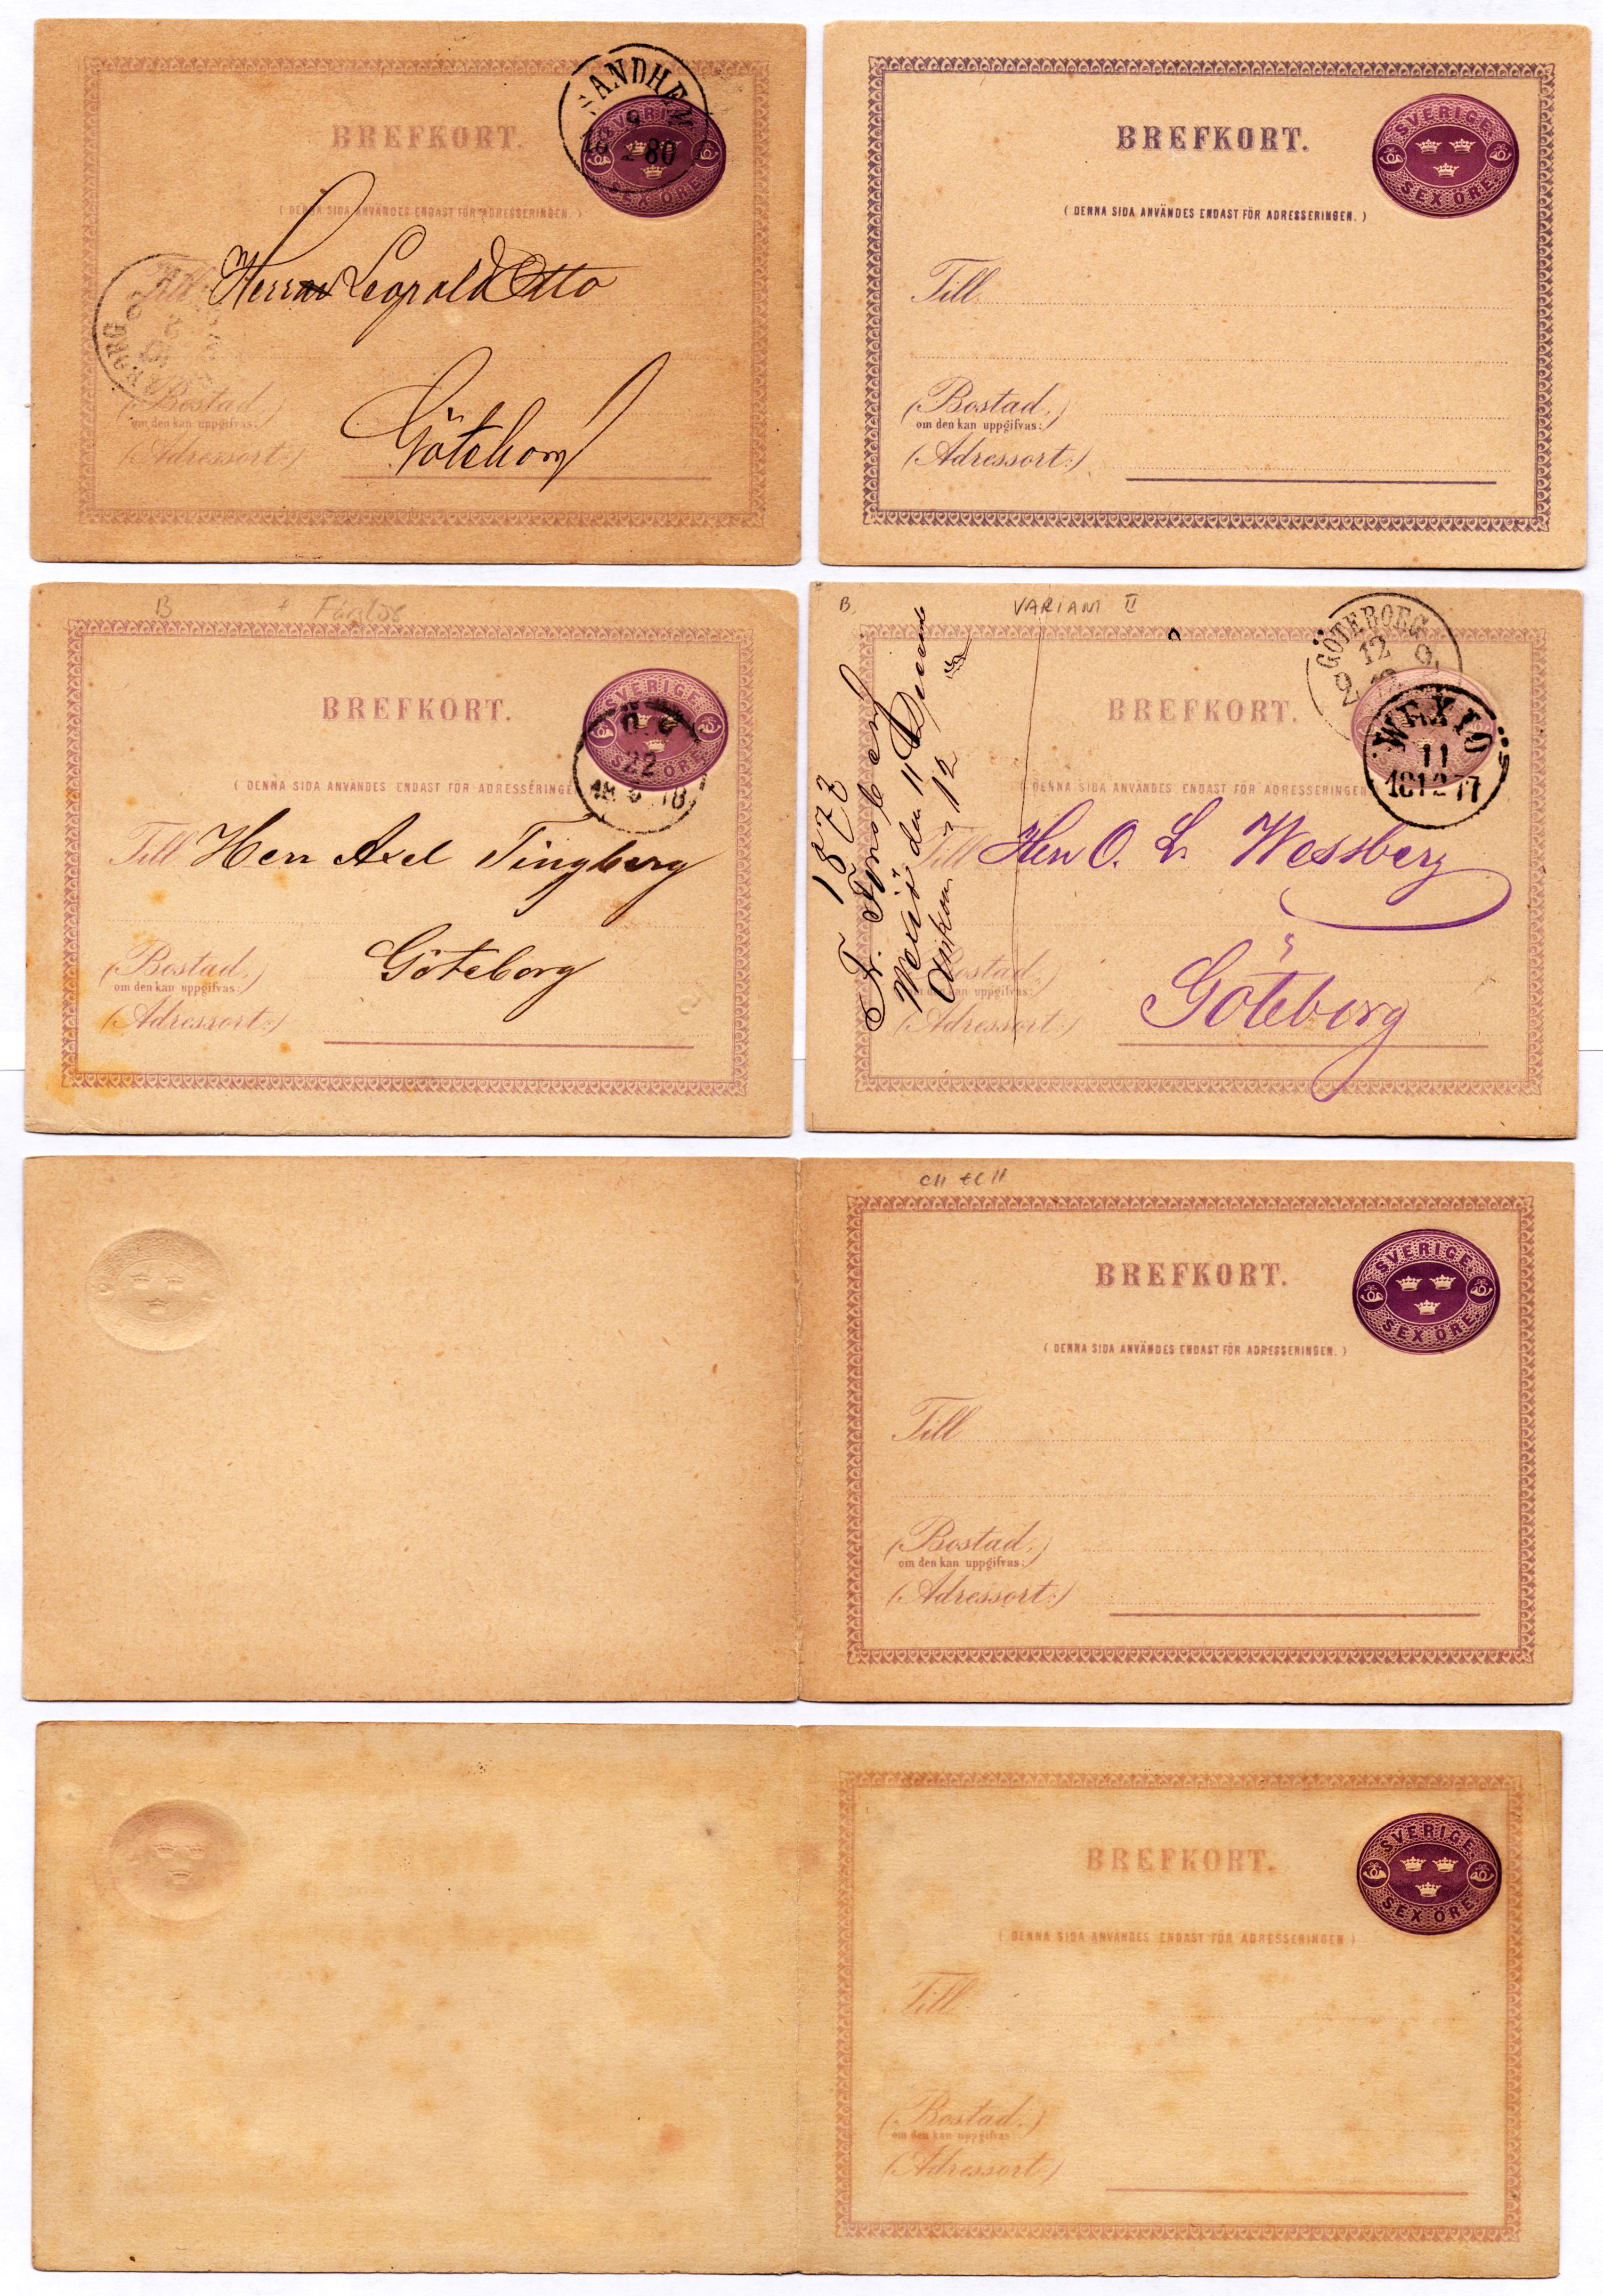 SANDHEM
9
2 80
SVERIGE
SEX ÖRE
BREFKORT.
( DENNA SIDA ANVÄNDES ENDAST FÖR ADRESSERINGEN. )
Till
Leopold Otto
(Bostad,)
om den kan uppgifvas:
Göteborg
(Adressort:)
SVERIGE
BREFKORT.
SEX ÖRE
( DENNA SIDA ANVÄNDES ENDAST FÖR ADRESSERINGEN. )
Till
(Bostad,)
om den kan uppgifvas:
(Adressort:)
B
SVERIGE
BREFKORT.
22
SEX ÖRE
( DENNA SIDA ANVÄNDES ENDAST FÖR ADRESSERINGE
Till Herr Axel Tingberg
(Bostad,)
om den kan uppgifvas:
Göteborg
(Adressort:)
B,
VARIANT II
GÖTEBORG
12
BREFKORT.
WEXIÖ
11
18 12 77
( DENNA SIDA ANVÄNDES ENDAST FÖR ADRESSERINGEN
1877
Wexiö den 11
12
Till Herr O. L. Wessberg
Bostad,)
om den kan uppgifvas:
(Adressort:)
Göteborg
SVERIGE
BREFKORT.
SEX ÖRE
( DENNA SIDA ANVÄNDES ENDAST FÖR ADRESSERINGEN. )
Till
(Bostad,)
om den kan uppgifvas:
(Adressort:)
SVERIGE
BREFKORT.
SEX ÖRE
( DENNA SIDA ANVÄNDES ENDAST FÖR ADRESSERINGEN )
Till
(Bostad,)
om den kan uppgifvas
(Adressort:)